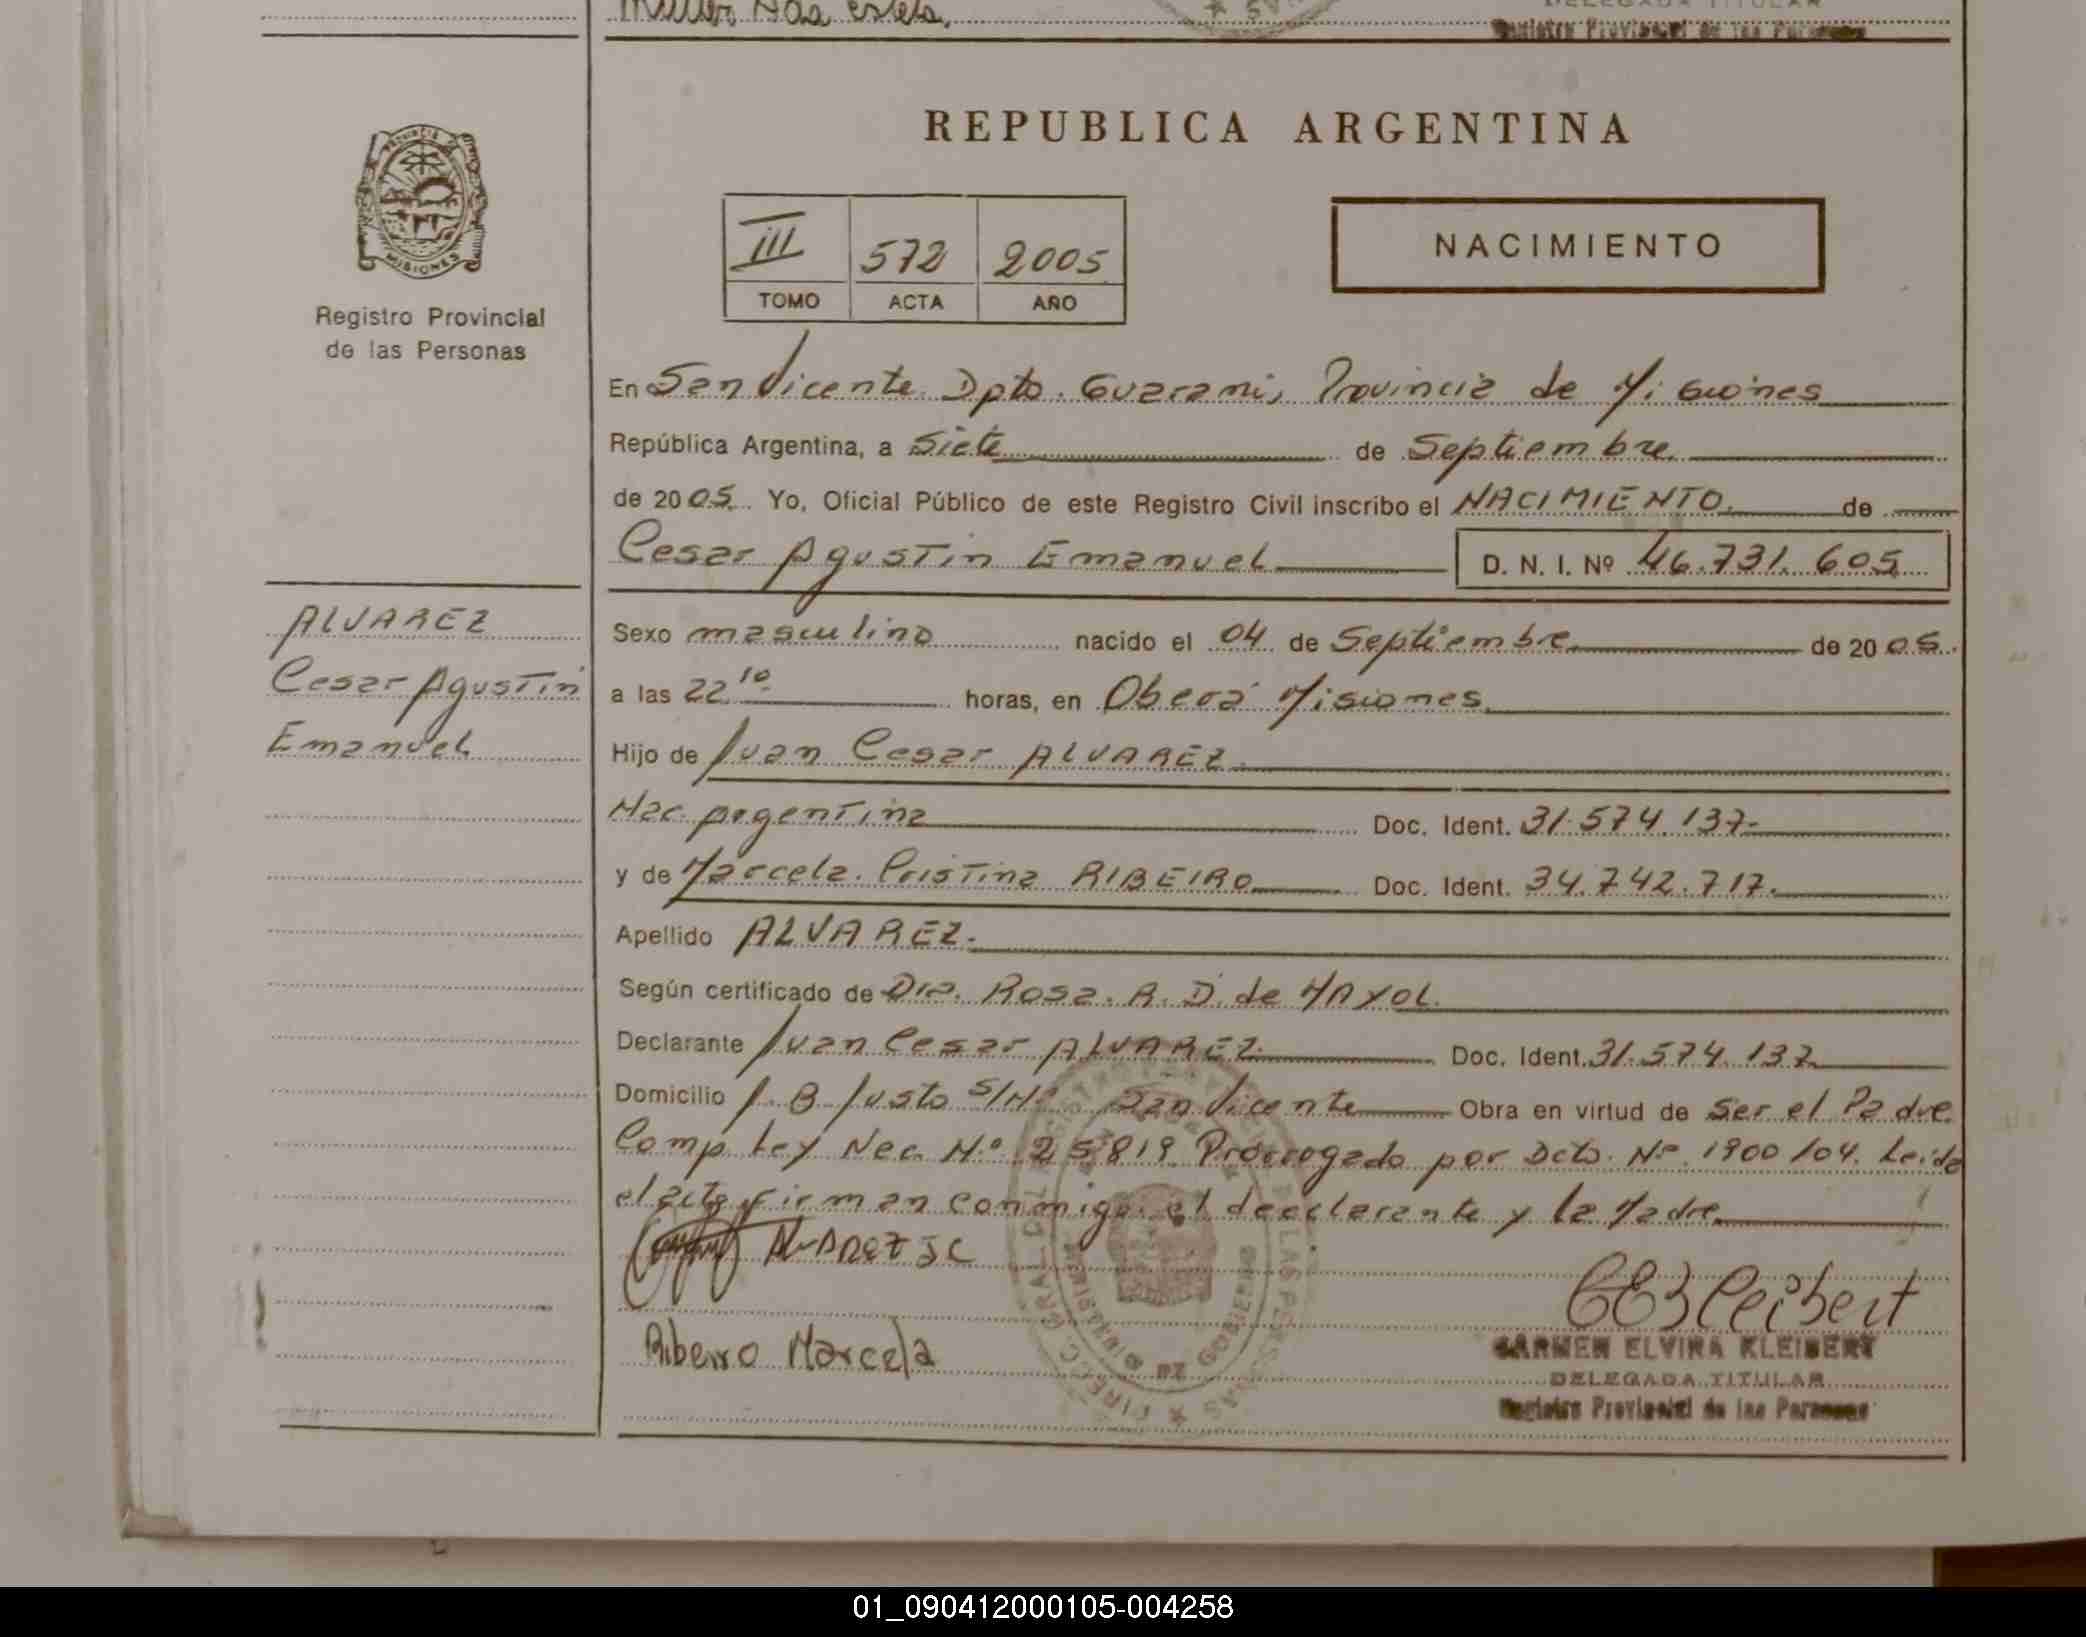 Miller Ada Estela.
DELEGADA TITULAR
Registro Provincial de las Personas
PROVINCIA DE
MISIONES
Registro Provincial
de las Personas
REPUBLICA ARGENTINA
III 572 2005
TOMO ACTA AÑO
NACIMIENTO
En San Vicente Dpto. Guarani, Provincia de Misiones
República Argentina, a Siete de Septiembre
de 2005. Yo, Oficial Público de este Registro Civil inscribo el NACIMIENTO de
Cesar Agustin Emanuel D. N. I. Nº 46.731.605
ALVAREZ
Cesar Agustin
Emanuel
Sexo masculino nacido el 04 de Septiembre de 2005.
a las 22 10 horas, en Oberá Misiones
Hijo de Juan Cesar ALVAREZ
Nac. Argentina Doc. Ident. 31.574.137-
y de Marcela Cristina RIBEIRO Doc. Ident. 34.742.717.
Apellido ALVAREZ.
Según certificado de Dra. Rosa. R. D. de MAYOL.
Declarante Juan Cesar ALVAREZ Doc. Ident. 31.574.137
Domicilio J. B Justo S/Nº San Vicente Obra en virtud de Ser el Padre
Comp. Ley Nac. Nº 25819 Prorrogado por Dcto. Nº 1900/04. Leida
el acta firman conmigo el declarante y la Madre
ALVAREZ JC
Ribeiro Marcela
CEKleibert
CARMEN ELVIRA KLEIBERT
DELEGADA TITULAR
Registro Provincial de las Personas
01_090412000105-004258